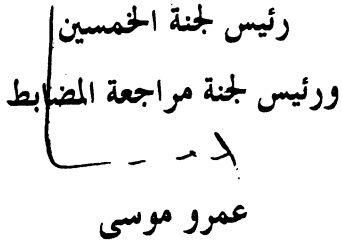 رئيس لجنة الخمسين
ورئيس لجنة مراجعة المضابط
عمرو موسى